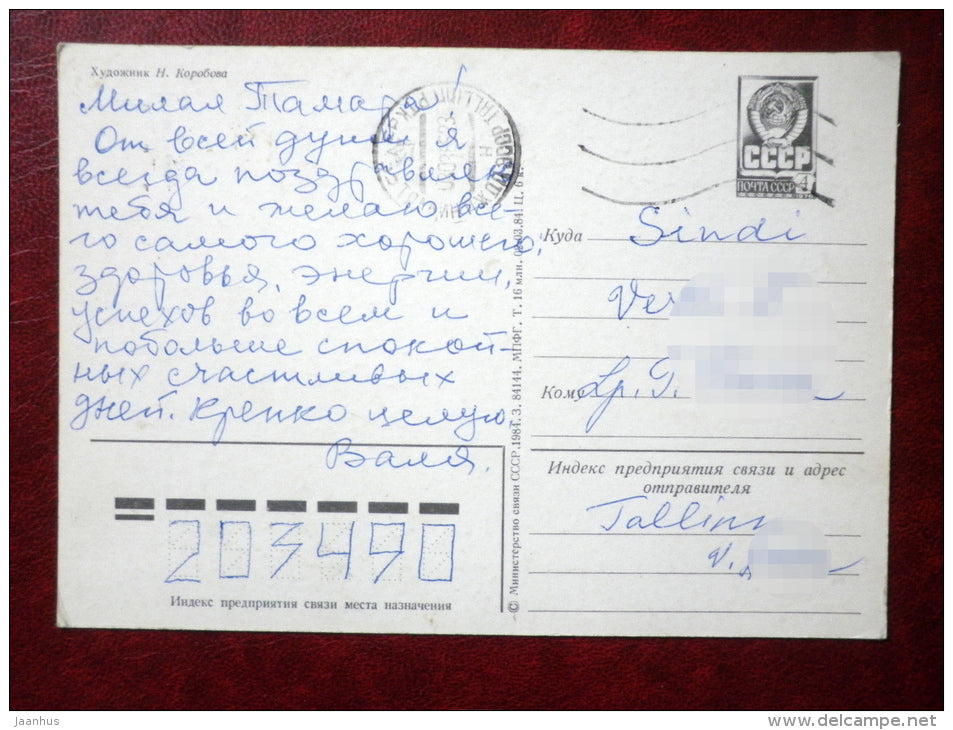 Художник Н. Коробова
Милая Тамара!
От всей души я
всегда поздравляю
тебя и желаю все-
го самого хорошего,
здоровья, энергии,
успехов во всем и
побольше спокой-
ных счастливых
дней. Крепко целую
Валя.
203490
Индекс предприятия связи места назначения
© Министерство связи СССР. 1984. З. 84144. МПФГ. Т. 16 млн. 03.84. Ц. 6 к.
СССР
ПОЧТА СССР 4
Куда Sindi
Кому
Индекс предприятия связи и адрес
отправителя
Tallinn
V.
Jaanhus
www.delcampe.net